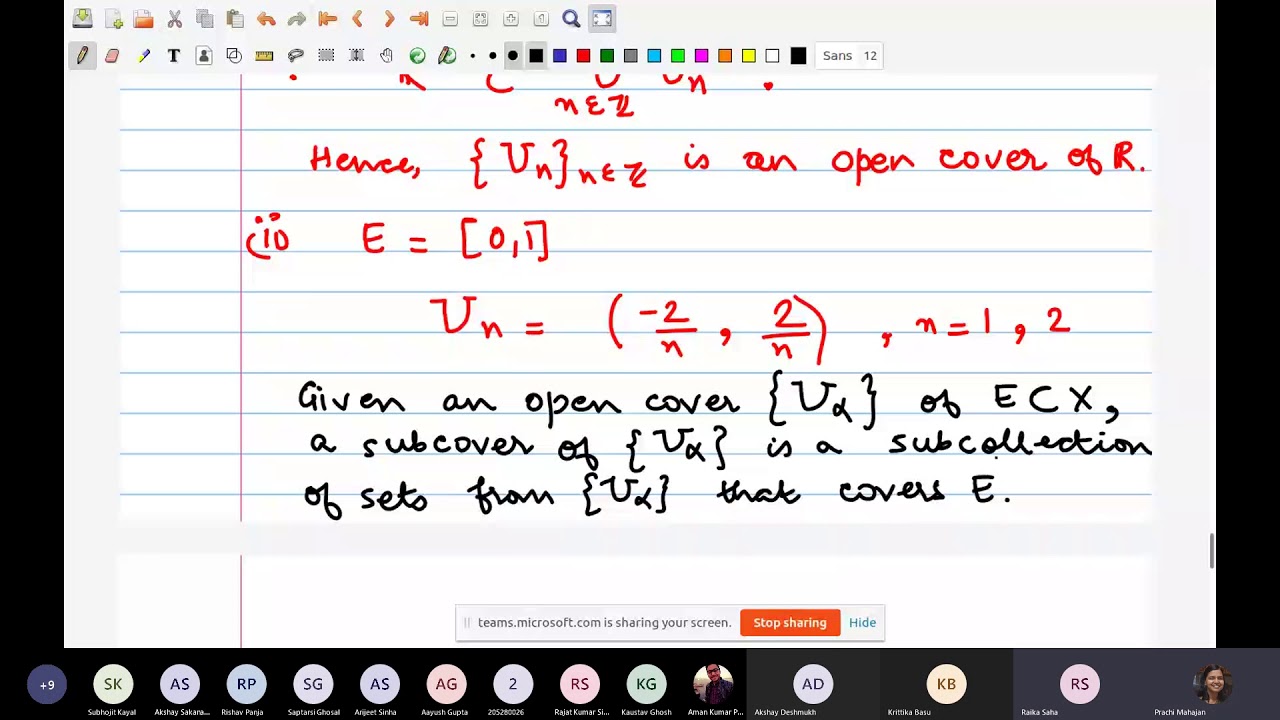 Sans 12
n∈ℤ
Hence, {Un}n∈ℤ is an open cover of R.
(ii) E = [0,1]
Un = (-2/n , 2/n) , n=1, 2
Given an open cover {Uα} of E⊂X,
a subcover of {Uα} is a subcollection
of sets from {Uα} that covers E.
teams.microsoft.com is sharing your screen. Stop sharing Hide
+9 SK AS RP SG AS AG 2 RS KG AD KB RS
Subhojit Kayal Akshay Sakana... Rishav Panja Saptarsi Ghosal Arijeet Sinha Aayush Gupta 205280026 Rajat Kumar Si... Kaustav Ghosh Aman Kumar P... Akshay Deshmukh Krittika Basu Raika Saha Prachi Mahajan